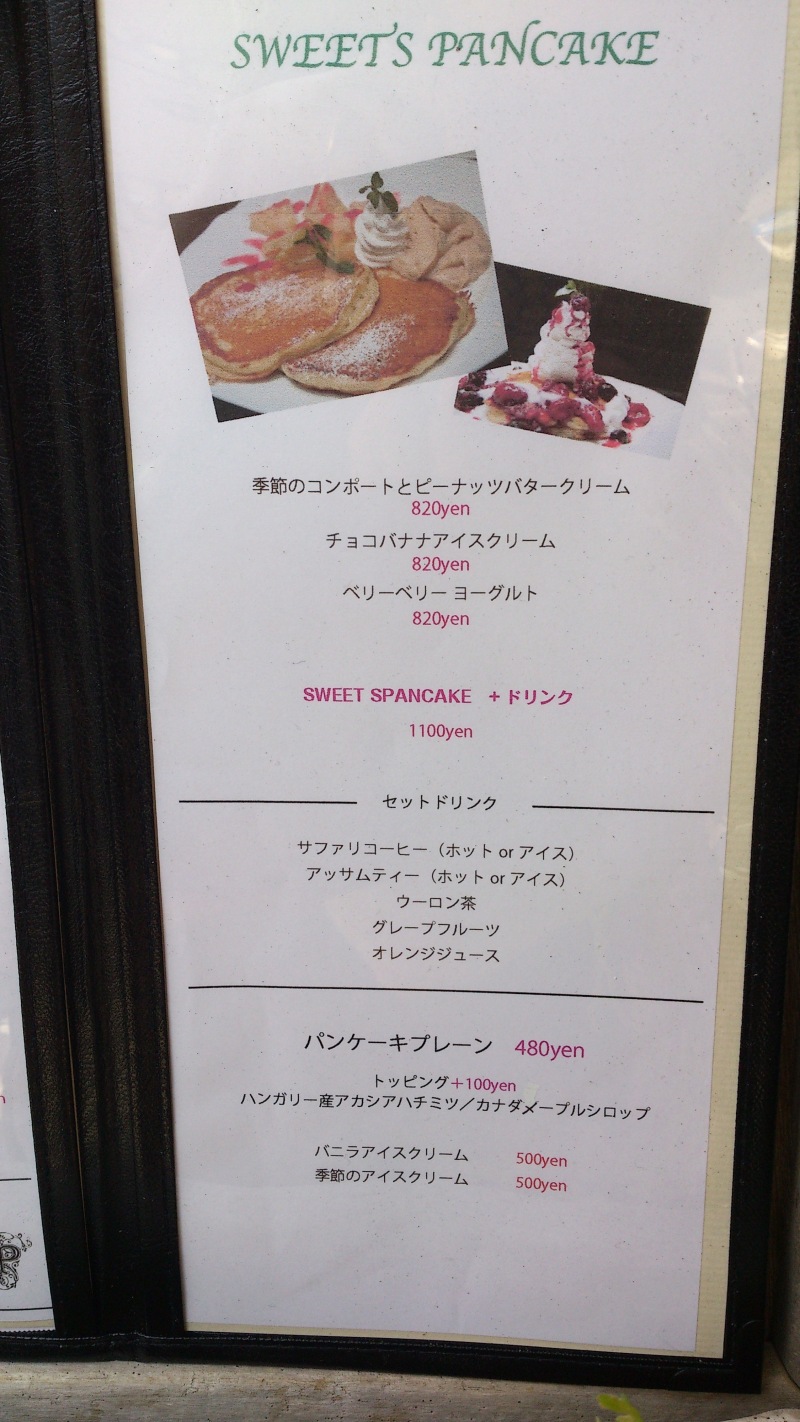 SWEETS PANCAKE
季節のコンポートとピーナッツバタークリーム
820yen
チョコバナナアイスクリーム
820yen
ベリーベリー ヨーグルト
820yen
SWEET SPANCAKE +ドリンク
1100yen
セットドリンク
サファリコーヒー（ホット or アイス）
アッサムティー（ホット or アイス）
ウーロン茶
グレープフルーツ
オレンジジュース
パンケーキプレーン 480yen
トッピング+100yen
ハンガリー産アカシアハチミツ／カナダメープルシロップ
バニラアイスクリーム 500yen
季節のアイスクリーム 500yen